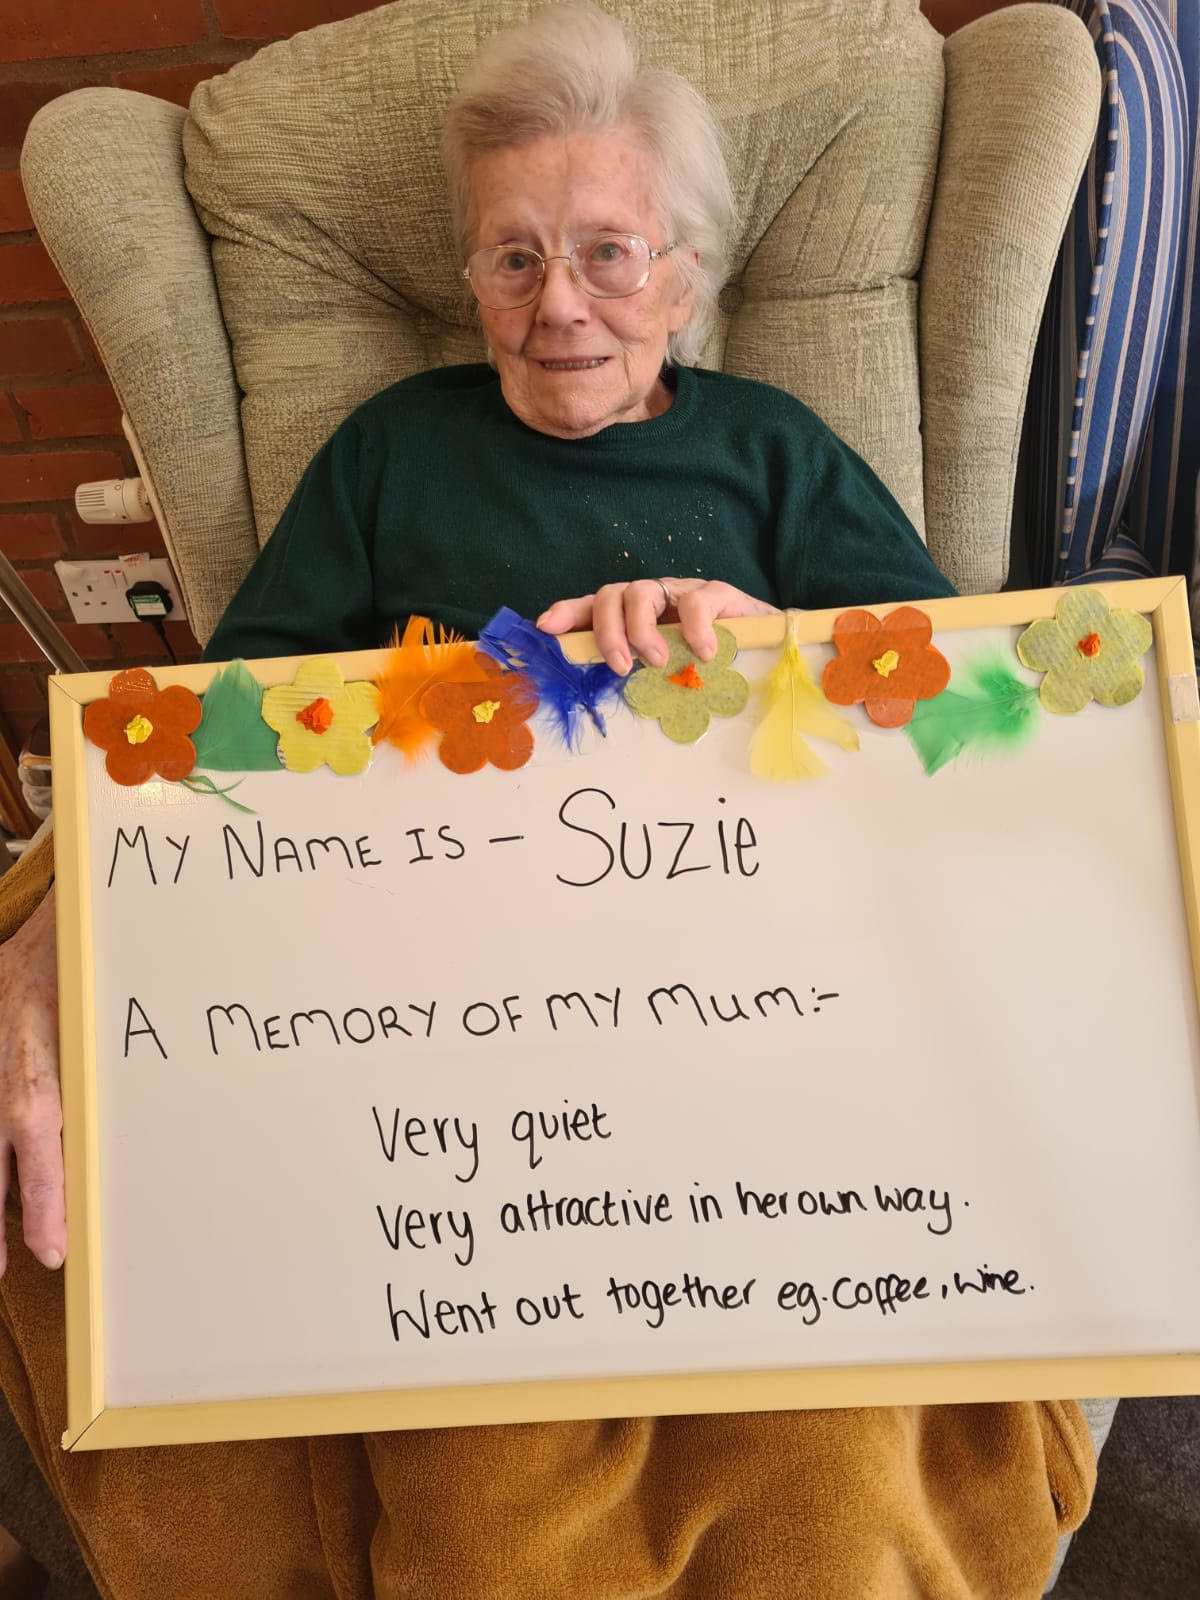 MY NAME IS - Suzie
A MEMORY OF MY MUM:-
Very quiet
Very attractive in her own way.
Went out together eg. coffee, wine.